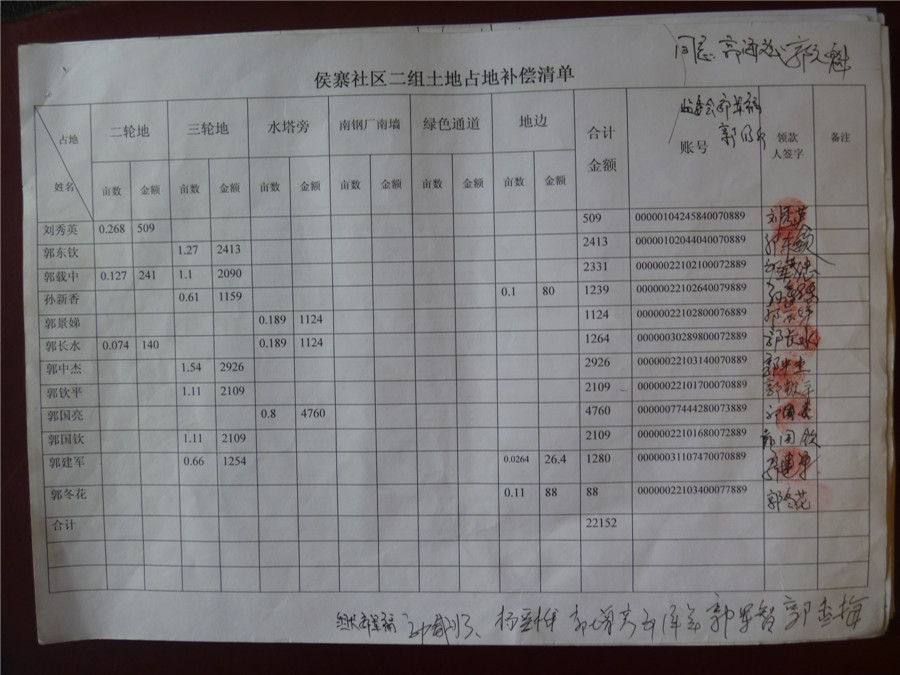 同意
侯寨社区二组土地占地补偿清单
占地 姓名 二轮地 三轮地 水塔旁 南钢厂南墙 绿色通道 地边 合计金额 账号 领款人签字 备注
亩数 金额 亩数 金额 亩数 金额 亩数 金额 亩数 金额 亩数 金额
刘秀英 0.268 509 509 00000104245840070889 刘秀英
郭东钦 1.27 2413 2413 00000102044040070889 郭东钦
郭载中 0.127 241 1.1 2090 2331 00000022102100072889
孙新香 0.61 1159 0.1 80 1239 00000022102640079889 孙新香
郭景娣 0.189 1124 1124 00000022102800076889
郭长水 0.074 140 0.189 1124 1264 00000030289800072889 郭长水
郭中杰 1.54 2926 2926 00000022103140070889 郭中杰
郭钦平 1.11 2109 2109 00000022101700070889 郭钦平
郭国亮 0.8 4760 4760 00000077444280073889 郭国亮
郭国钦 1.11 2109 2109 00000022101680072889 郭国钦
郭建军 0.66 1254 0.0264 26.4 1280 00000031107470070889 郭建军
郭冬花 0.11 88 88 00000022103400077889 郭冬花
合计 22152